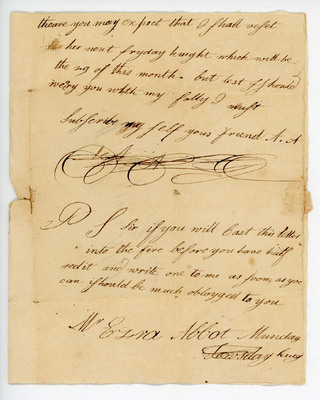 theare you may expect that I shall veset
her next fryday knight which will be
the 29 of this month. but lest I should
weary you whth my folly I must
Subscribe my self your friend A. A
P S Sir if you will Cast this letter
into the fire before you have half
red it and write one to me as soon as you
can I should be much oblogged to you
Mr Ezra Abbot Munday